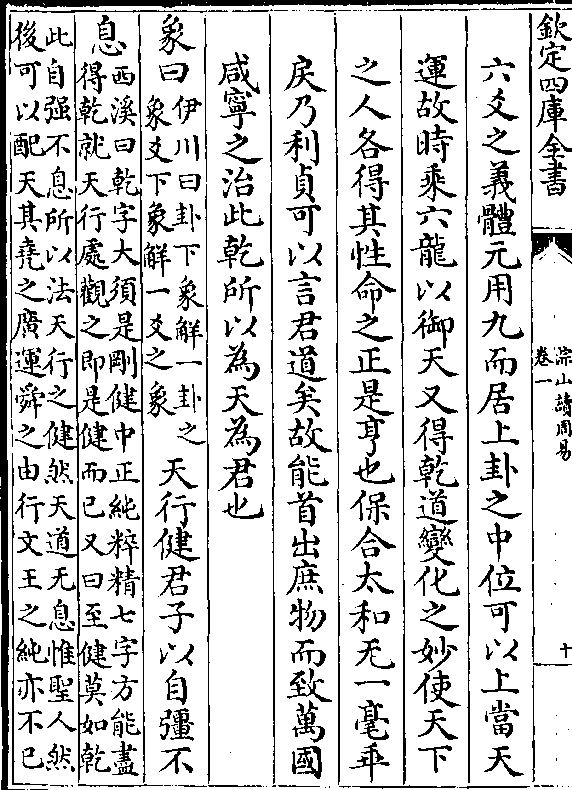 欽定四庫全書
淙山讀周易
卷一
十
六爻之義體元用九而居上卦之中位可以上當天
運故時乘六龍以御天又得乾道變化之妙使天下
之人各得其性命之正是亨也保合太和无一毫乖
戾乃利貞可以言君道矣故能首出庶物而致萬國
咸寧之治此乾所以為天為君也
象曰
伊川曰卦下象解一卦之
象爻下象解一爻之象
天行健君子以自彊不
息
西溪曰乾字大須是剛健中正純粹精七字方能盡
得乾就天行處觀之即是健而已又曰至健莫如乾
此自强不息所以法天行之健然天道无息惟聖人然
後可以配天其堯之廣運舜之由行文王之純亦不已